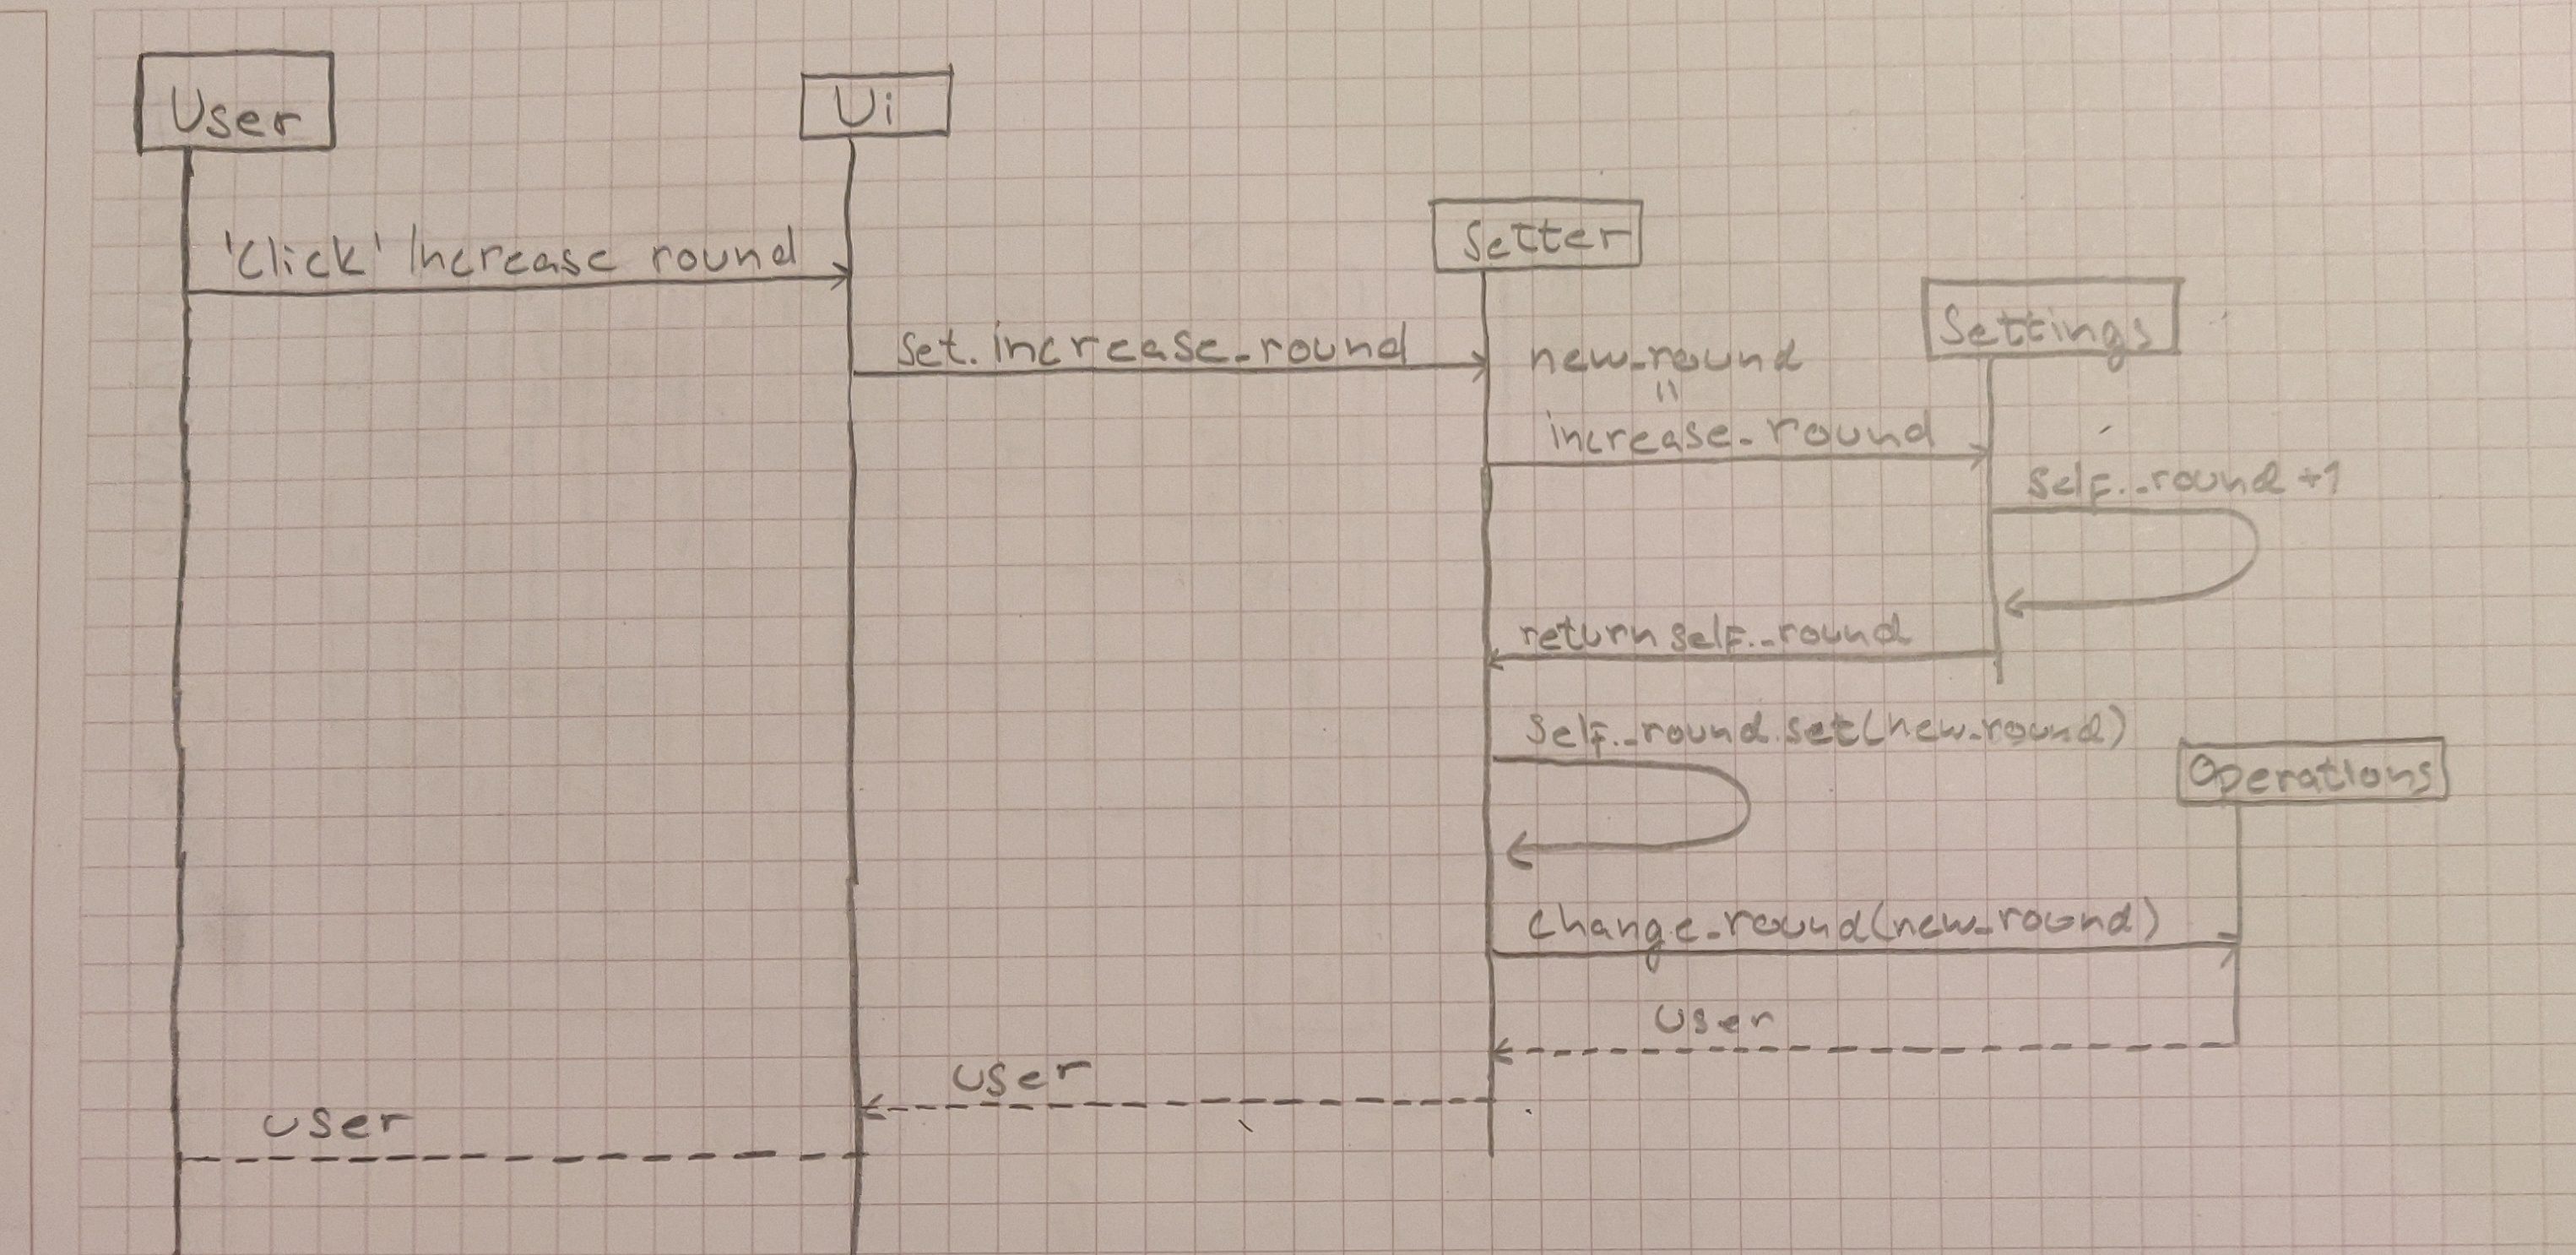 User
Ui
Setter
Settings
'Click' Increase round
set.increase_round
new_round
=
increase_round
self._round +1
return self._round
self._round.set(new_round)
Operations
change_round(new_round)
user
user
user